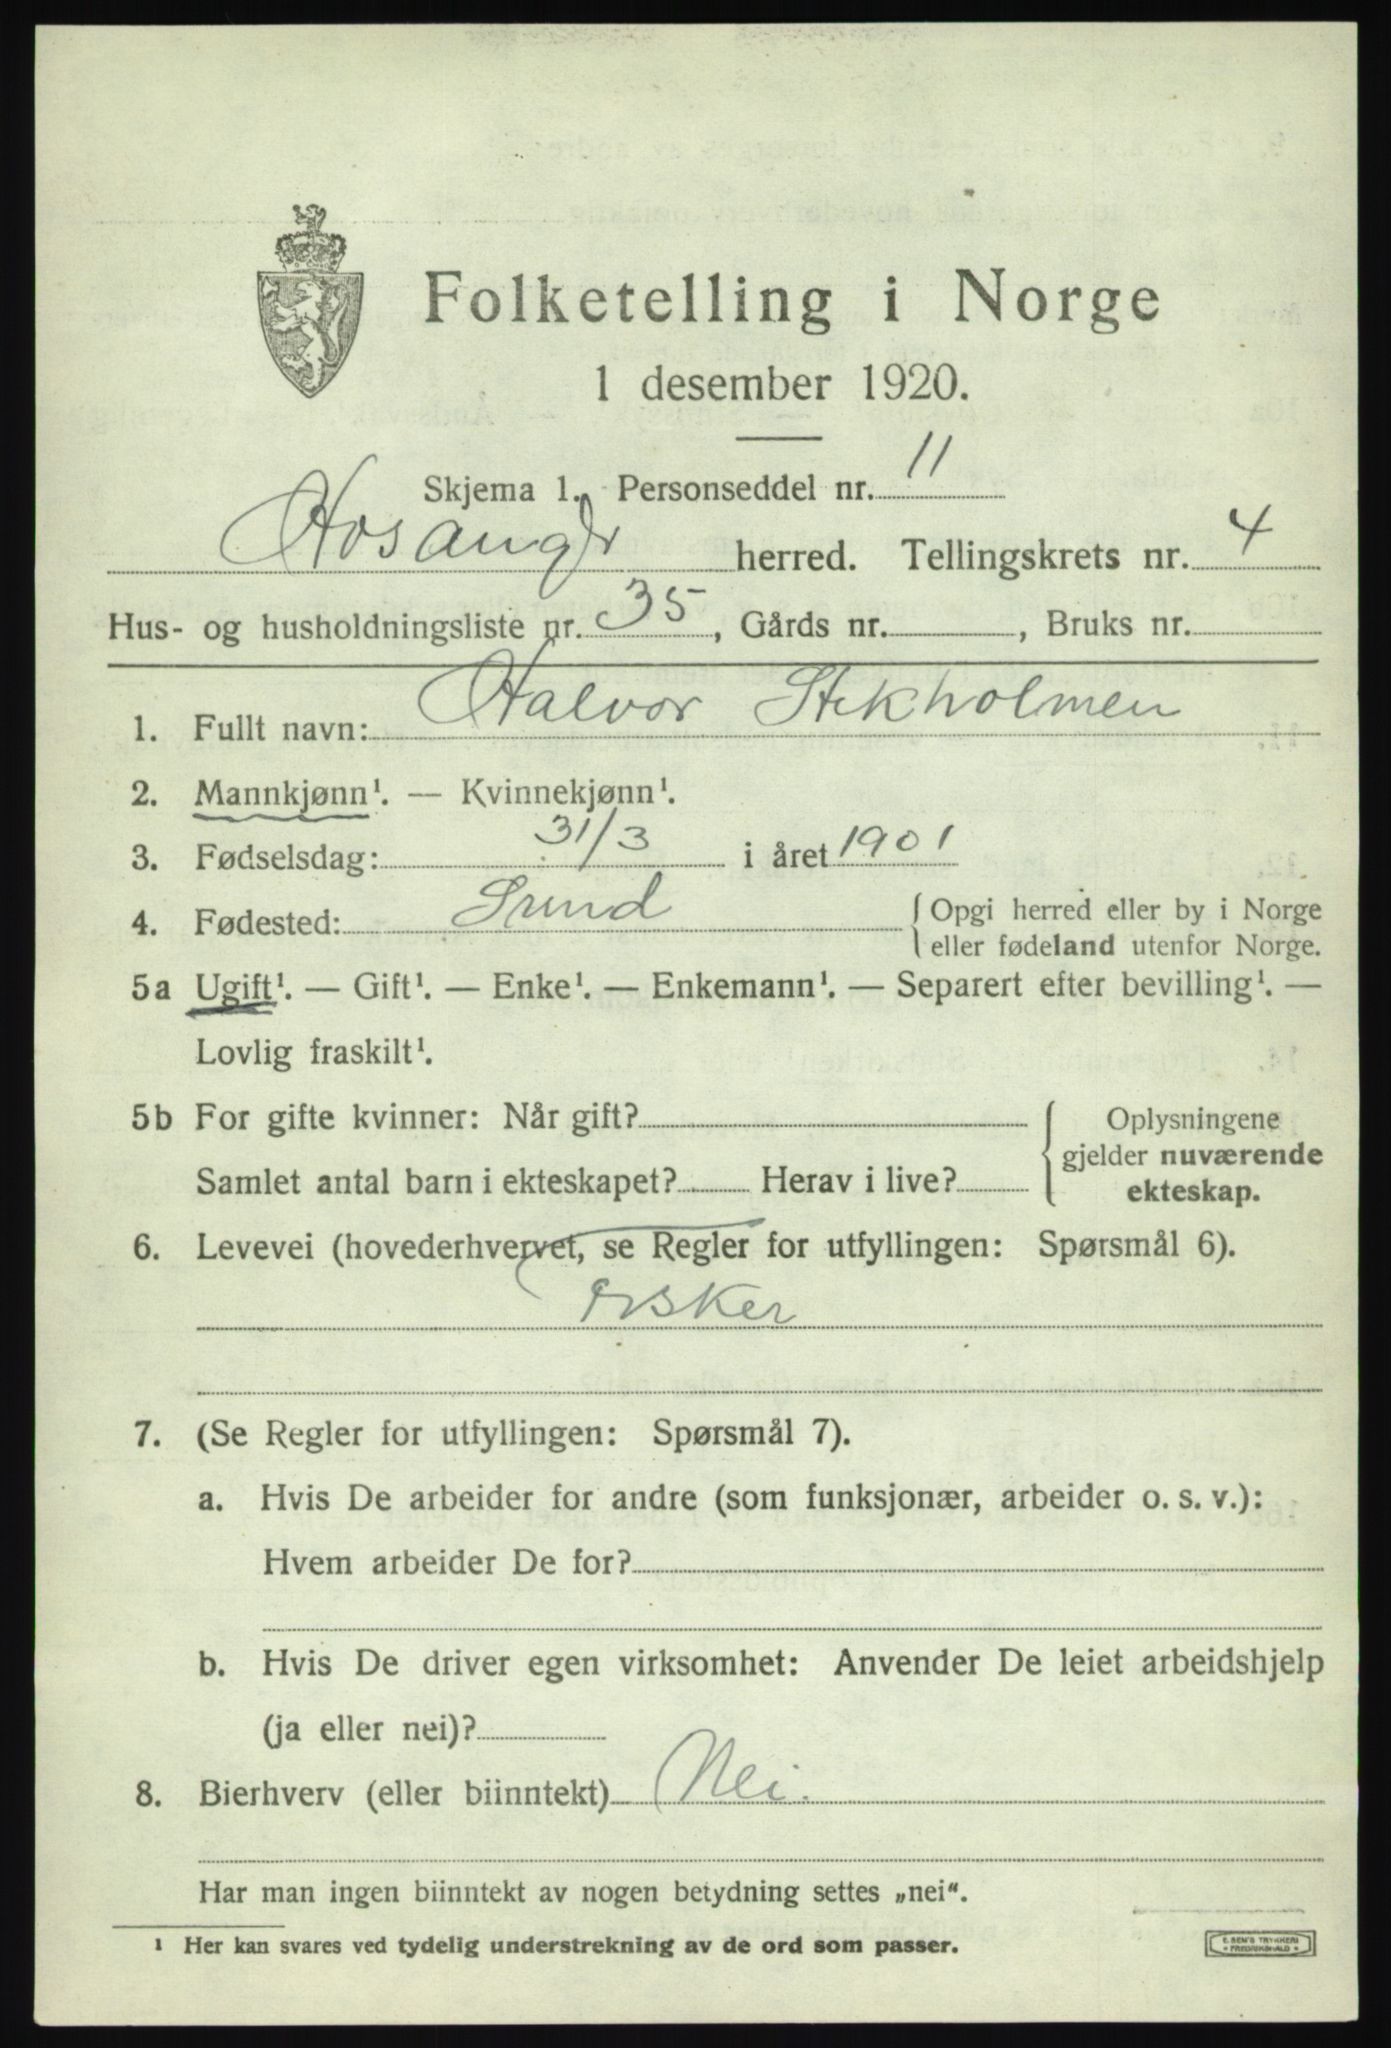 Folketelling i Norge
1 desember 1920.
Skjema 1. Personseddel nr. 11
Hosanger herred. Tellingskrets nr. 4
Hus- og husholdningsliste nr. 35, Gårds nr. , Bruks nr.
1. Fullt navn: Halvor Stekholmen
2. Mannkjønn¹. — Kvinnekjønn¹.
3. Fødselsdag: 31/3 i året 1901
4. Fødested: Sund { Opgi herred eller by i Norge
eller fødeland utenfor Norge.
5a Ugift¹. — Gift¹. — Enke¹. — Enkemann¹. — Separert efter bevilling¹. —
Lovlig fraskilt¹.
5b For gifte kvinner: Når gift? { Oplysningene
gjelder nuværende
Samlet antal barn i ekteskapet? Herav i live? ekteskap.
6. Levevei (hovederhvervet, se Regler for utfyllingen: Spørsmål 6).
Fisker
7. (Se Regler for utfyllingen: Spørsmål 7).
a. Hvis De arbeider for andre (som funksjonær, arbeider o. s. v.):
Hvem arbeider De for?
b. Hvis De driver egen virksomhet: Anvender De leiet arbeidshjelp
(ja eller nei)?
8. Bierhverv (eller biinntekt) Nei.
Har man ingen biinntekt av nogen betydning settes „nei“.
¹ Her kan svares ved tydelig understrekning av de ord som passer.
E. SEM'S TRYKKERI
FREDRIKSHALD